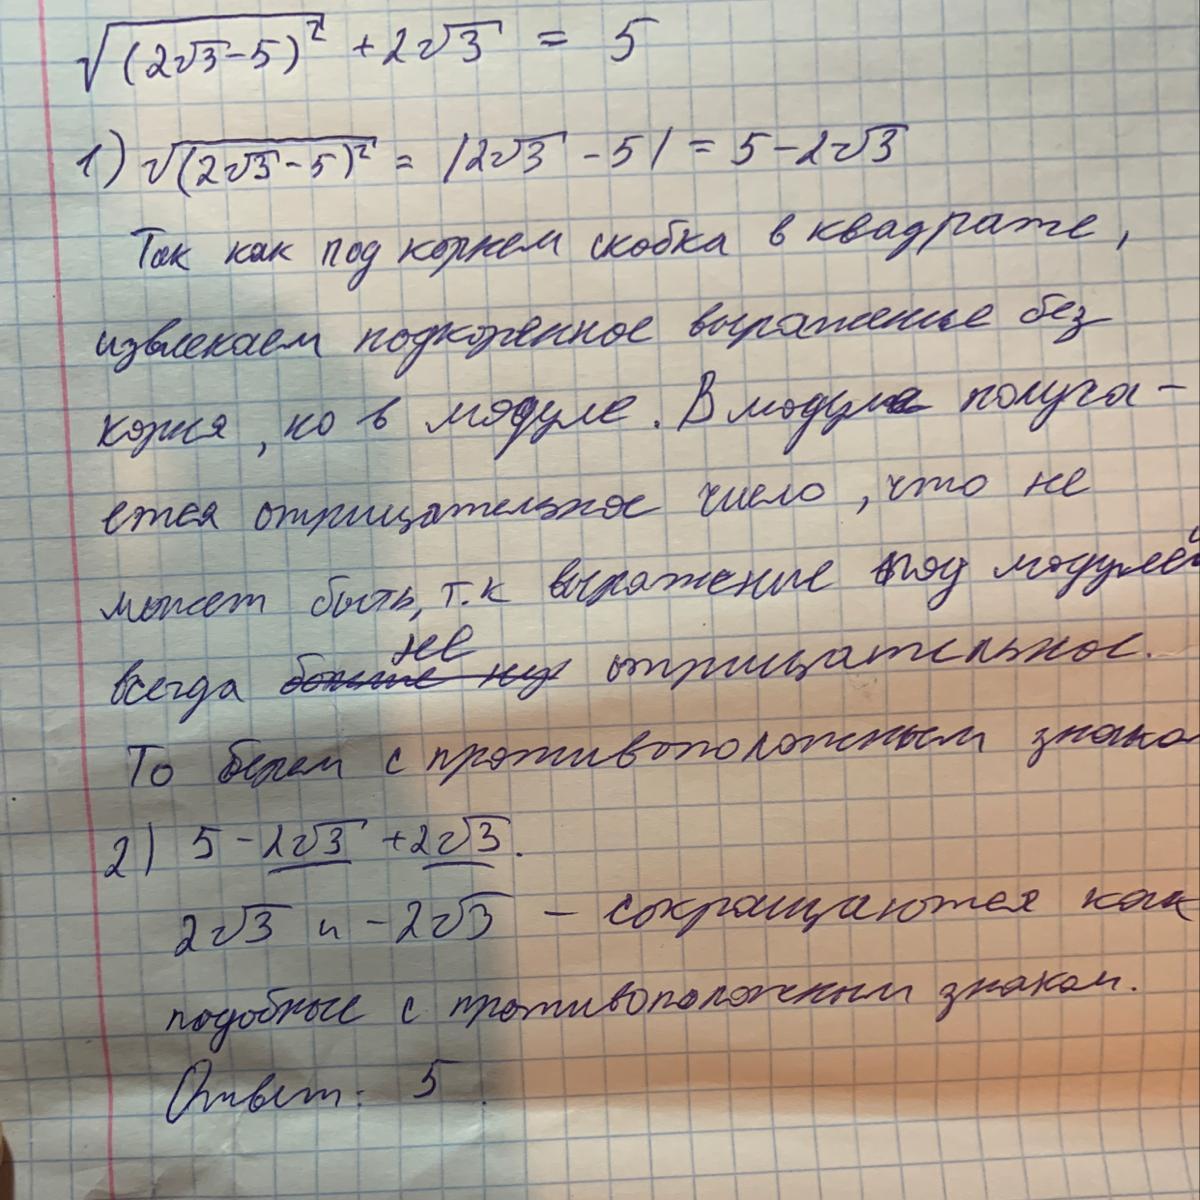 √(2√3-5)² + 2√3 = 5
1) √(2√3-5)² = |2√3 - 5| = 5-2√3
Так как под корнем скобка в квадрате,
извлекаем подкоренное выражение без
корня, но в модуле. В модуле получа-
ется отрицательное число, что не
может быть, т.к выражение под модулем
всегда не отрицательное.
То берем с противоположным знако
2) 5-2√3 +2√3.
2√3 и -2√3 - сокращаются как
подобные с противоположным знаком.
Ответ: 5.